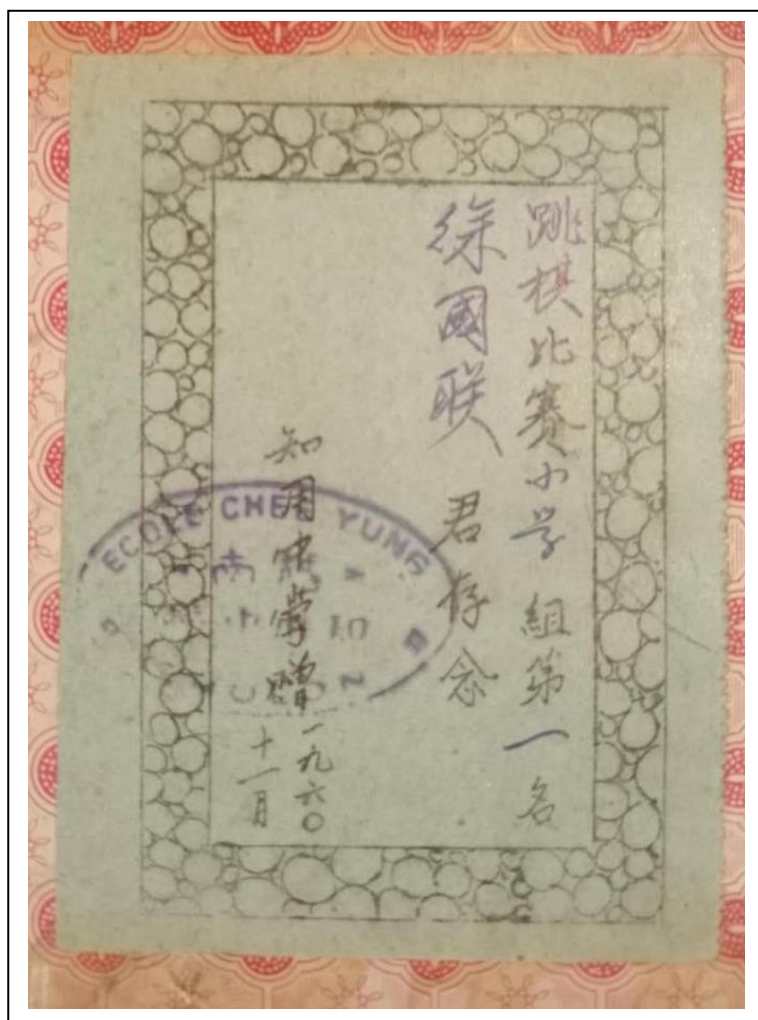 跳棋比赛小学組第一名
徐國联 君存念
知用中學贈
一九六〇
十一月
ECOLE CHEE YUNG